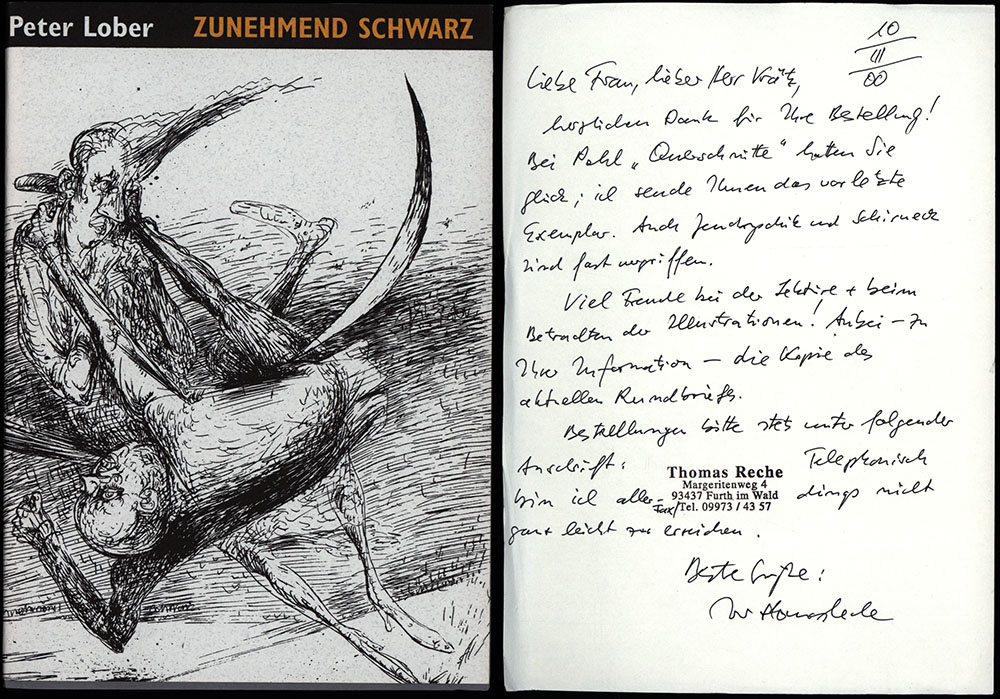 Peter Lober ZUNEHMEND SCHWARZ
10
III
00
Liebe Frau, lieber Herr
herzlichen Dank für Ihre Bestellung!
Bei Pohl „Querschnitte“ hatten Sie
Glück; ich sende Ihnen das vorletzte
Exemplar. Auch Jendryschik und Schirneck
sind fast vergriffen.
Viel Freude bei der Lektüre + beim
Betrachten der Illustrationen! Anbei – zu
Ihrer Information – die Kopie des
aktuellen Rundbriefs.
Bestellungen bitte stets unter folgender
Anschrift: Telephonisch
Thomas Reche
Margeritenweg 4
93437 Furth im Wald
Fax/Tel. 09973 / 43 57
bin ich aller- dings nicht
ganz leicht zu erreichen.
Beste Grüße:
Ihr Thomas Reche